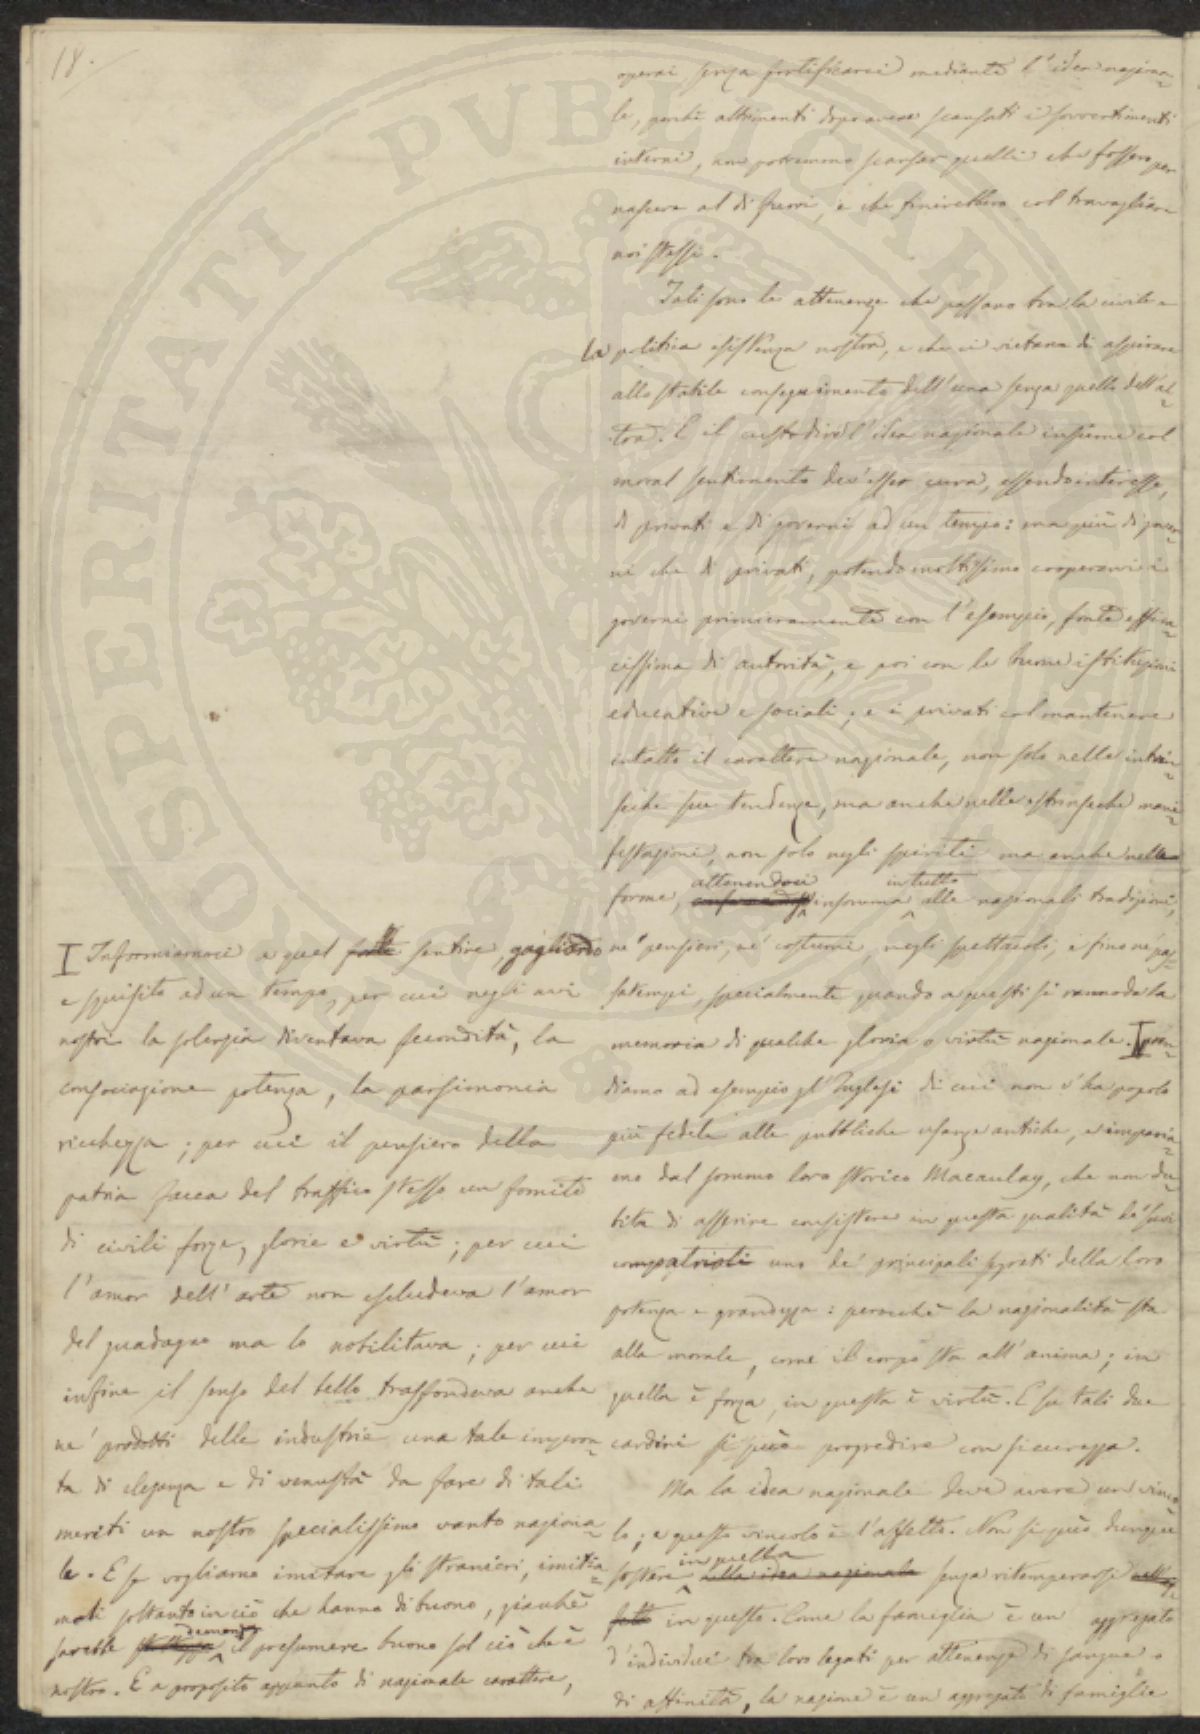 18.
operai senza fortificarci mediante l'idea naziona-
le, perchè altrimenti dopo avere scansati i sovvertimenti
interni, non potremmo scansar quelli che fossero per
nascere al di fuori, e che finirebbero col travagliare
noi stessi.
Tali sono le attenenze che passano tra la civile e
la politica esistenza nostra, e che ci vietano di aspirare
allo stabile conseguimento dell'una senza quello dell'al-
tra. E il custodire l'idea nazionale insieme col
moral sentimento dev'esser cura, essendo interesse,
di privati e di governi ad un tempo: ma più di gover-
ni che di privati, potendo moltissimo cooperarvi i
governi primieramente con l'esempio, fonte effica-
cissima di autorità, e poi con le buone istituzioni
educative e sociali; e i privati col mantenere
intatto il carattere nazionale, non solo nelle intrin-
seche sue tendenze, ma anche nelle estrinseche mani-
festazioni, non solo negli spiriti ma anche nelle
attenendoci in tutto
forme, insomma alle nazionali tradizioni,
ne' pensieri, ne' costumi, negli spettacoli, e fino ne' pas-
satempi, specialmente quando a questi si rannoda la
memoria di qualche gloria o virtù nazionale. I pren-
diamo ad esempio gl'Inglesi di cui non v'ha popolo
più fedele alle pubbliche usanze antiche, e imparia-
mo dal sommo loro storico Macaulay, che non du-
bita di asserire consistere in questa qualità de' suoi
compatrioti uno de' principali segreti della loro
potenza e grandezza: perocchè la nazionalità sta
alla morale, come il corpo sta all'anima; in
quella è forza, in questa è virtù. E su tali due
cardini si può progredire con sicurezza.
Ma la idea nazionale deve avere un vinco-
lo; e questo vincolo è l'affetto. Non si può dunque
in quella
sostare della idea nazionale senza ritemperarsi nell'af-
fetto in questo. Come la famiglia è un aggregato
d'individui tra loro legati per attenenza di sangue o
di affinità, la nazione è un aggregato di famiglie
I Informiamoci a quel forte sentire, gagliardo
e squisito ad un tempo, per cui negli avi
nostri la solerzia diventava fecondità, la
consociazione potenza, la parsimonia
ricchezza; per cui il pensiero della
patria facea del traffico stesso un fomite
di civili forze, glorie e virtù; per cui
l'amor dell'arte non escludeva l'amor
del guadagno ma lo nobilitava; per cui
infine il senso del bello trasfondeva anche
ne' prodotti delle industrie una tale impron-
ta di eleganza e di venustà da fare di tali
meriti un nostro specialissimo vanto naziona-
le. E se vogliamo imitare gli stranieri, imitia-
moli soltanto in ciò che hanno di buono, giacchè
demenza
sarebbe il presumere buono sol ciò che è
nostro. E a proposito appunto di nazionale carattere,